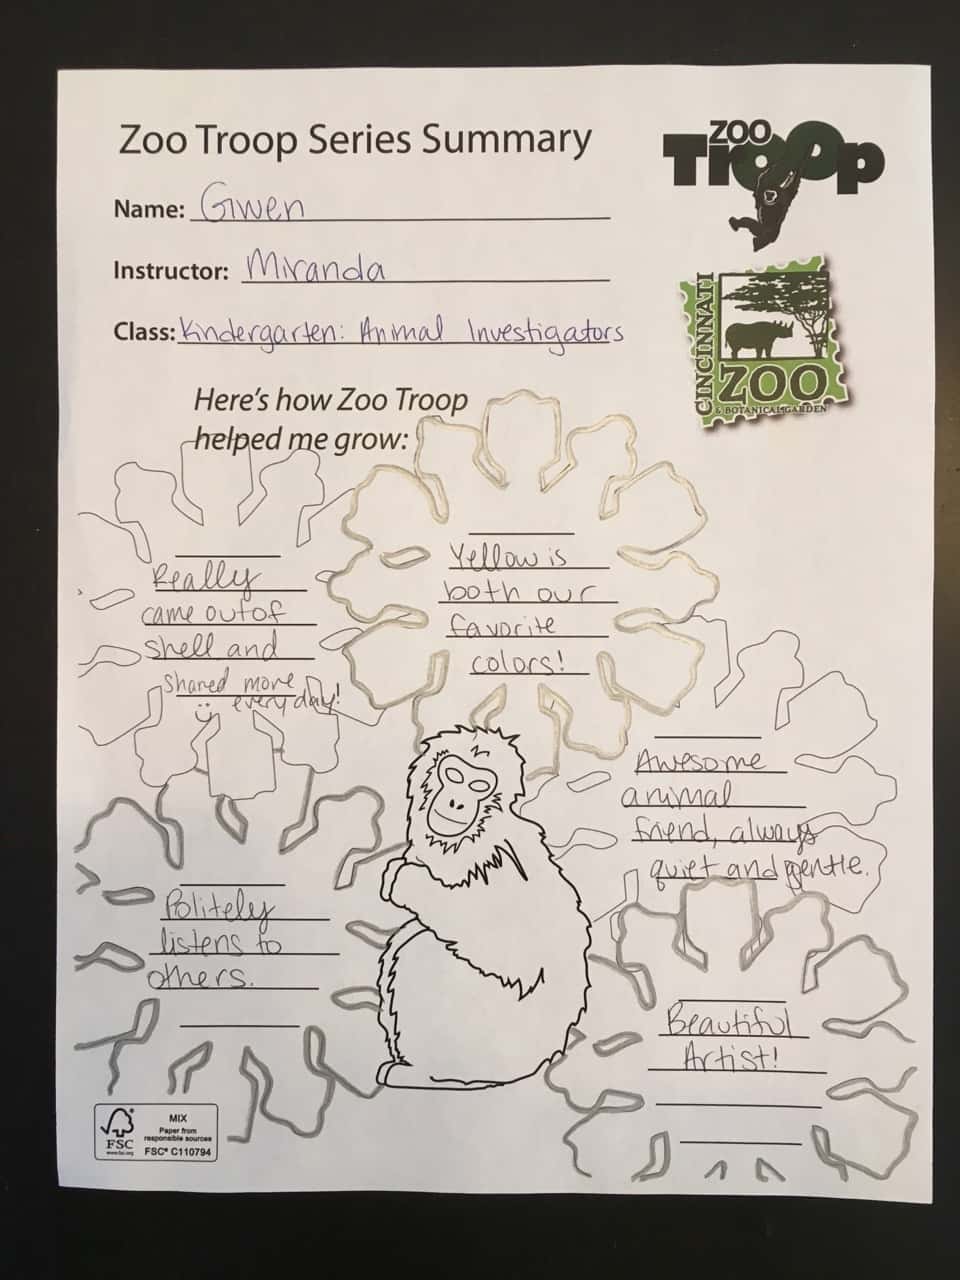 Zoo Troop Series Summary
ZOO
Troop
Name: Gwen
Instructor: Miranda
Class: Kindergarten: Animal Investigators
CINCINNATI
ZOO
& BOTANICAL GARDEN
Here's how Zoo Troop
helped me grow:
Really
came out of
shell and
shared more
everyday!
Yellow is
both our
favorite
colors!
Awesome
animal
friend, always
quiet and gentle.
Politely
listens to
others.
Beautiful
Artist!
FSC
www.fsc.org
MIX
Paper from
responsible sources
FSC® C110794